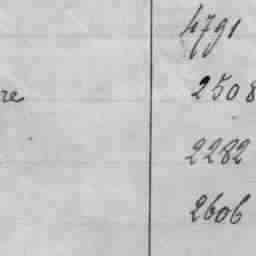 4791
re 2508
2282
2606